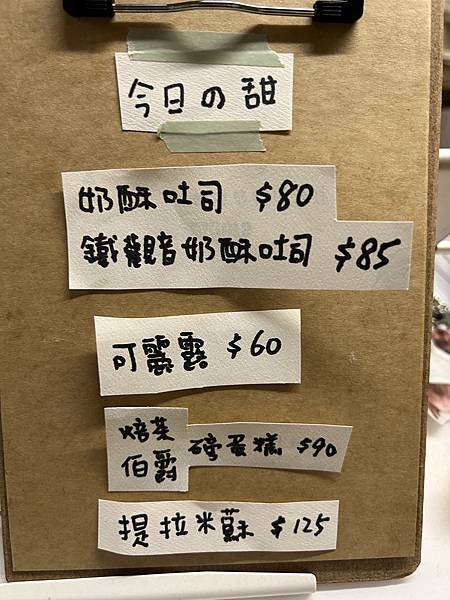 今日の甜
奶酥吐司 $80
鐵觀音奶酥吐司 $85
可露露 $60
焙茶
伯爵 磅蛋糕 $90
提拉米蘇 $125